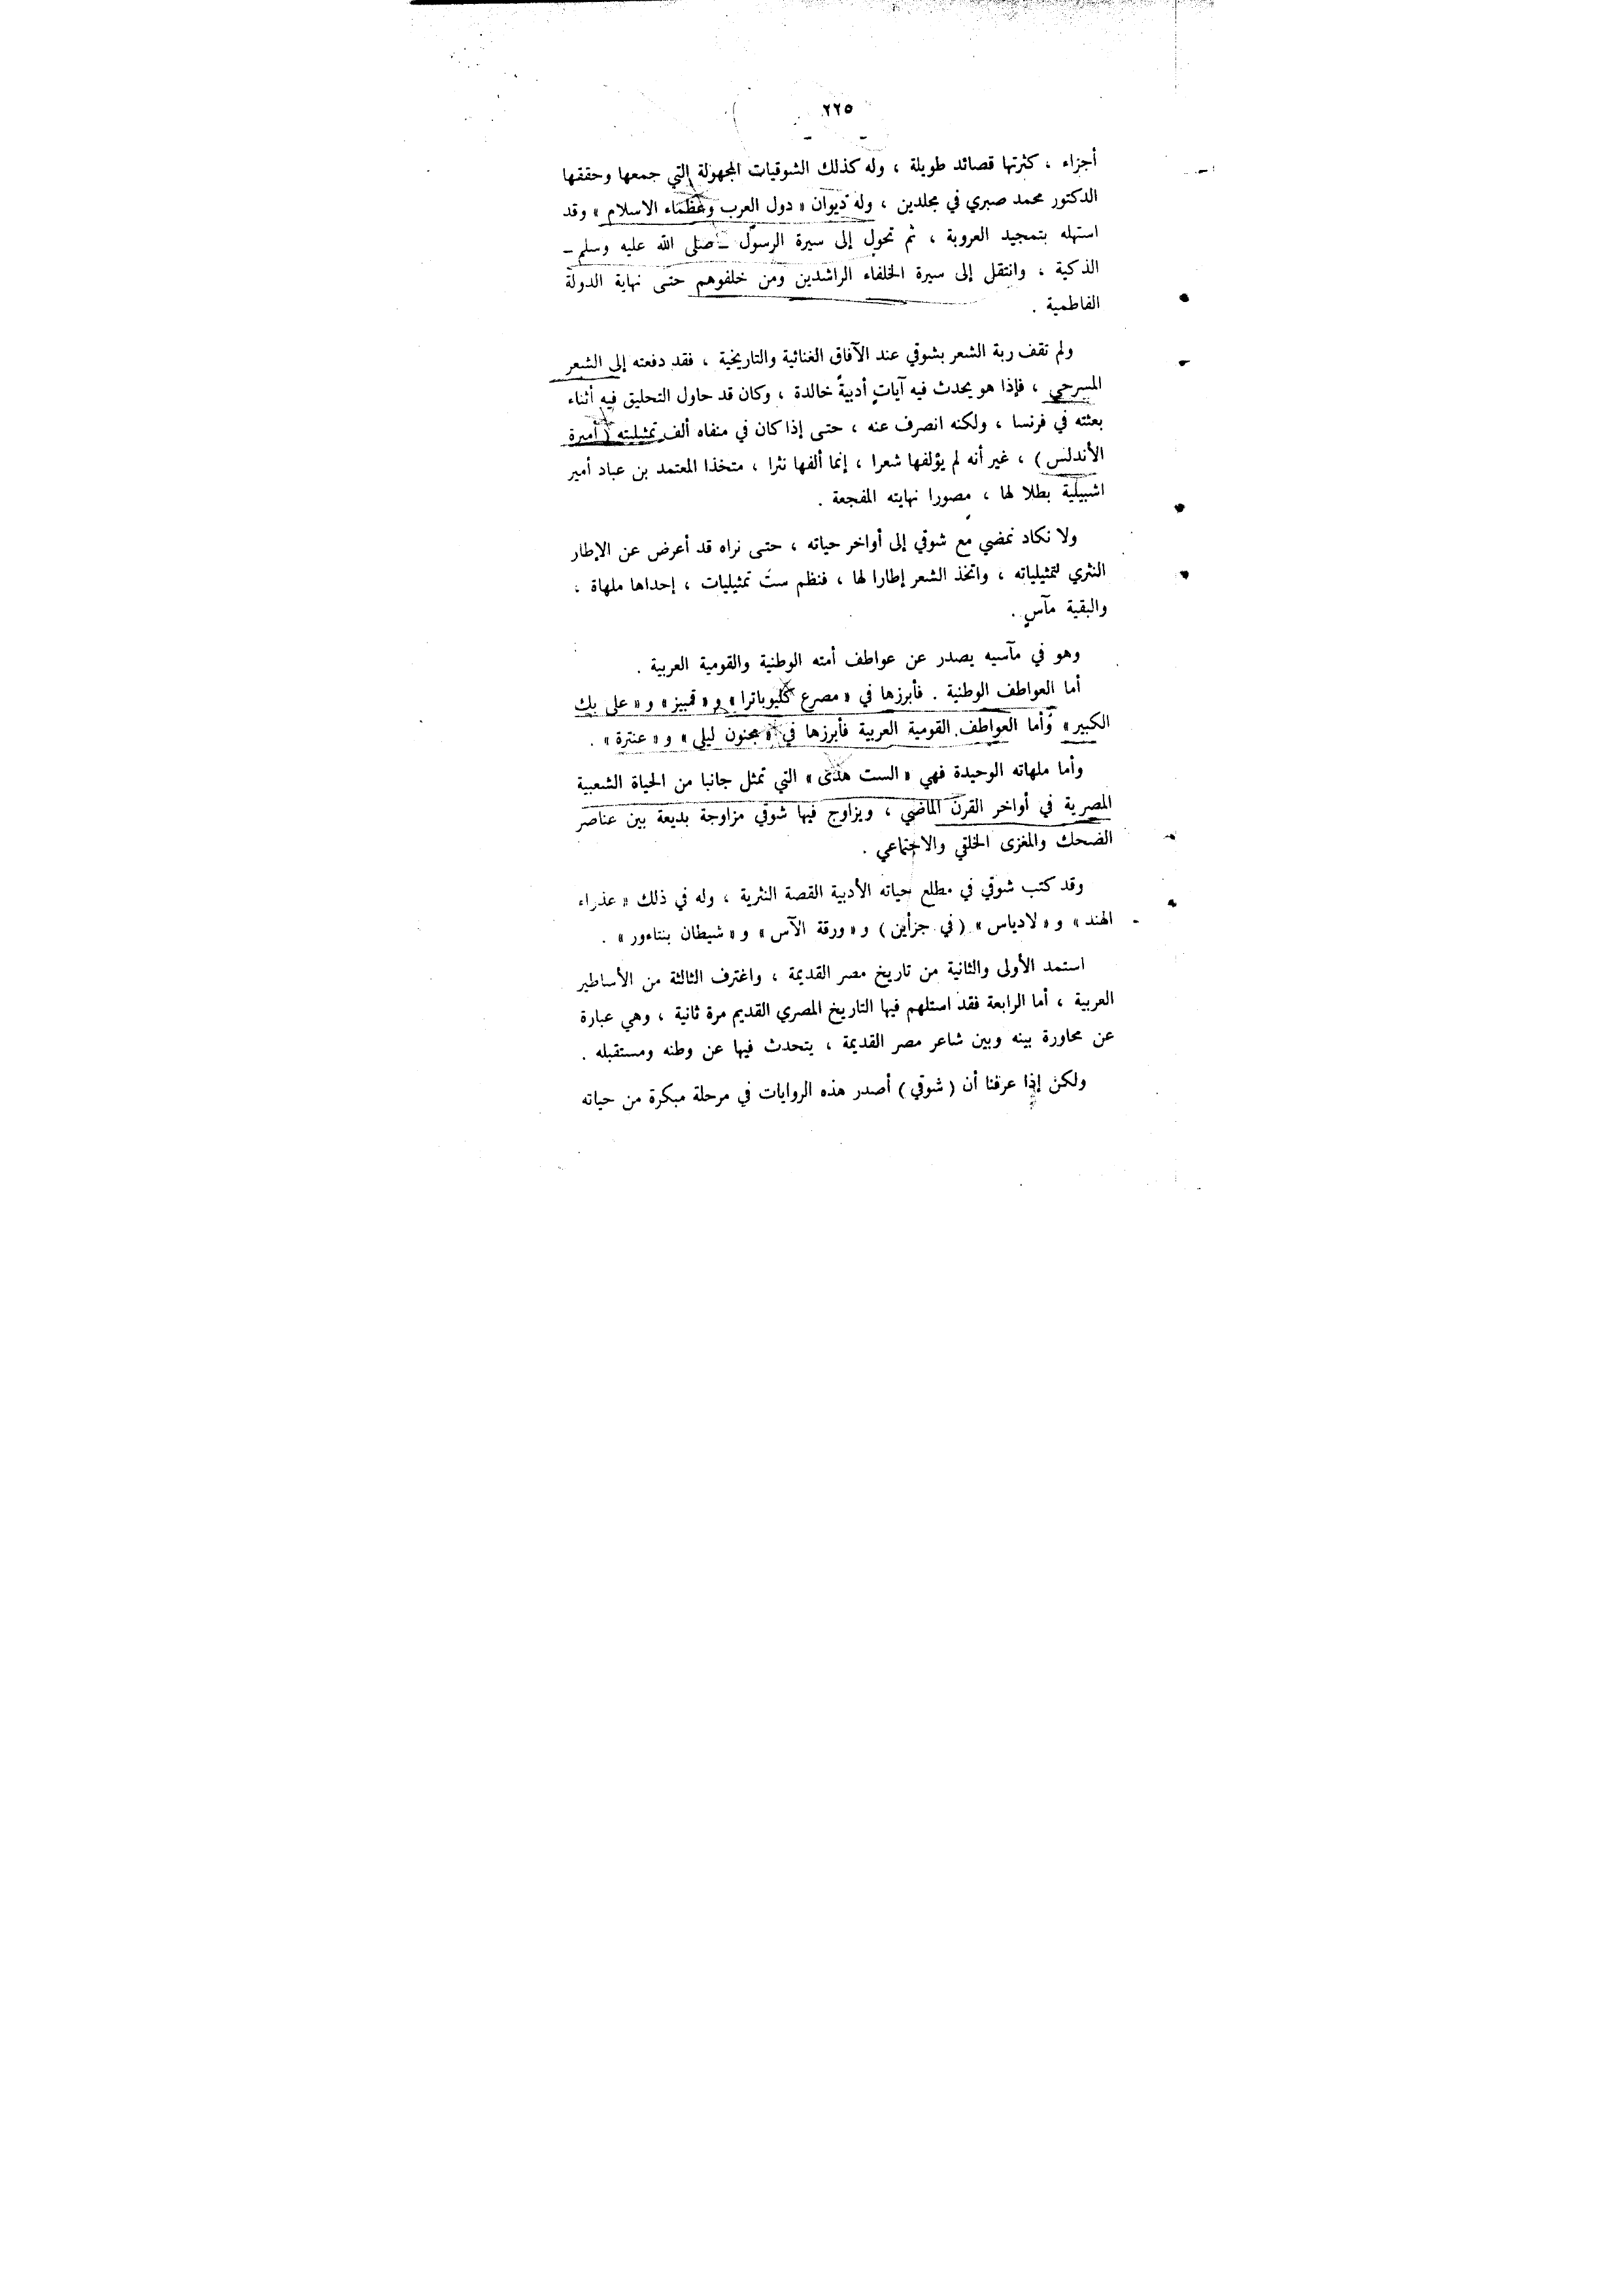 ٢٢٥
أجزاء ، كثرتها قصائد طويلة ، وله كذلك الشوقيات المجهولة التي جمعها وحققها
الدكتور محمد صبري في مجلدين ، وله ديوان « دول العرب وعظماء الاسلام » وقد
استهله بتمجيد العروبة ، ثم تحول إلى سيرة الرسول – صلى الله عليه وسلم –
الذكية ، وانتقل إلى سيرة الخلفاء الراشدين ومن خلفوهم حتى نهاية الدولة
الفاطمية .
ولم تقف ربة الشعر بشوقي عند الآفاق الغنائية والتاريخية ، فقد دفعته إلى الشعر
المسرحي ، فإذا هو يحدث فيه آياتٍ أدبيةً خالدة ، وكان قد حاول التحليق فيه أثناء
بعثته في فرنسا ، ولكنه انصرف عنه ، حتى إذا كان في منفاه ألف تمثيليته ( أميرة
الأندلس ) ، غير أنه لم يؤلفها شعرا ، إنما ألفها نثرا ، متخذا المعتمد بن عباد أمير
اشبيلية بطلا لها ، مصورا نهايته المفجعة .
ولا نكاد نمضي مع شوقي إلى أواخر حياته ، حتى نراه قد أعرض عن الإطار
النثري لتمثيلياته ، واتخذ الشعر إطارا لها ، فنظم ست تمثيليات ، إحداها ملهاة ،
والبقية مآسٍ .
وهو في مآسيه يصدر عن عواطف أمته الوطنية والقومية العربية .
أما العواطف الوطنية . فأبرزها في « مصرع كليوباترا » و « قمبيز » و « على بك
الكبير » وأما العواطف القومية العربية فأبرزها في « مجنون ليلى » و « عنترة » .
وأما ملهاته الوحيدة فهي « الست هدى » التي تمثل جانبا من الحياة الشعبية
المصرية في أواخر القرن الماضي ، ويزاوج فيها شوقي مزاوجة بديعة بين عناصر
الضحك والمغزى الخلقي والاجتماعي .
وقد كتب شوقي في مطلع حياته الأدبية القصة النثرية ، وله في ذلك « عذراء
الهند » و « لادياس » ( في جزأين ) و « ورقة الآس » و « شيطان بنتاءور » .
استمد الأولى والثانية من تاريخ مصر القديمة ، واغترف الثالثة من الأساطير
العربية ، أما الرابعة فقد استلهم فيها التاريخ المصري القديم مرة ثانية ، وهي عبارة
عن محاورة بينه وبين شاعر مصر القديمة ، يتحدث فيها عن وطنه ومستقبله .
ولكن إذا عرفنا أن ( شوقي ) أصدر هذه الروايات في مرحلة مبكرة من حياته